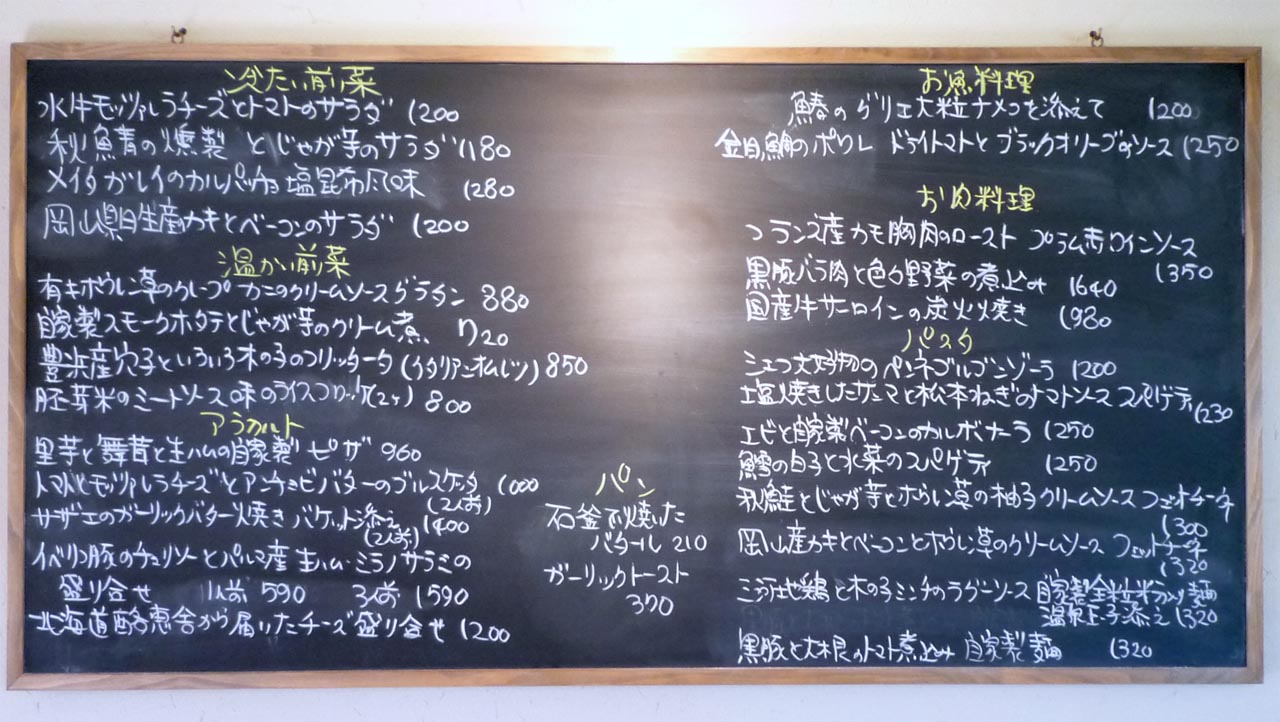 冷たい前菜
水牛モッツァレラチーズとトマトのサラダ 1200
秋鯖の燻製とじゃが芋のサラダ 1180
メイタガレイのカルパッチョ 塩昆布風味 1280
岡山県日生産カキとベーコンのサラダ 1200
温かい前菜
有キホウレン草のクレープ カニのクリームソースグラタン 880
自家製スモークホタテとじゃが芋のクリーム煮 720
豊浜産穴子といろいろ木の子のフリッタータ(イタリアン オムレツ) 850
胚芽米のミートソース味のライスコロッケ(2ヶ) 800
アラカルト
里芋と舞茸と生ハムの自家製ピザ 960
トマトとモッツァレラチーズとアンチョビバターのブルスケッタ 1000
(2人前)
サザエのガーリックバター焼き バケット添え 1400
(2人前)
イベリコ豚のチョリソーとパルマ産生ハム・ミラノサラミの
盛り合せ 1人前 590 3人前 1590
北海道酪恵舎から届いたチーズ盛り合せ 1200
パン
石釜で焼いた
バタール 210
ガーリックトースト
370
お魚料理
鰆のグリエ 大粒ナメコを添えて 1200
金目鯛のポワレ ドライトマトとブラックオリーブのソース 1250
お肉料理
フランス産カモ胸肉のロースト プラム赤ワインソース
1350
黒豚バラ肉と色々野菜の煮込み 1640
国産牛サーロインの炭火焼き 1980
パスタ
シェフ大好物のペンネゴルゴンゾーラ 1200
塩焼きしたサンマと松本ねぎのトマトソース スパゲティ 1230
エビと自家製ベーコンのカルボナーラ 1250
鱈の白子と水菜のスパゲティ 1250
秋鮭とじゃが芋とホウレン草の柚子クリームソース フェットチーネ
1300
岡山産カキとベーコンとホウレン草のクリームソース フェットチーネ
1320
三河地鶏と木の子ミンチのラグーソース 自家製全粒粉入り麺
温泉玉子添え 1320
黒豚と大根のトマト煮込み 自家製麺 1320